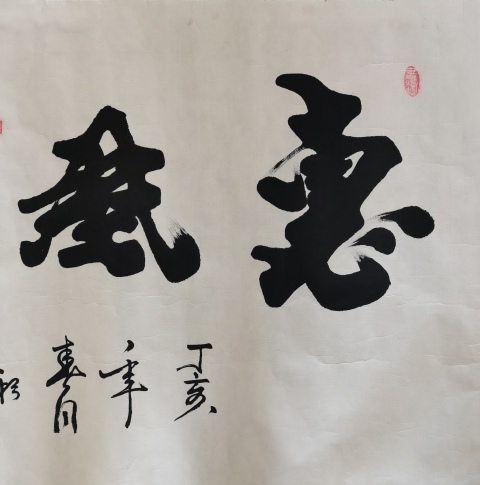 惠風
丁亥
年
春月